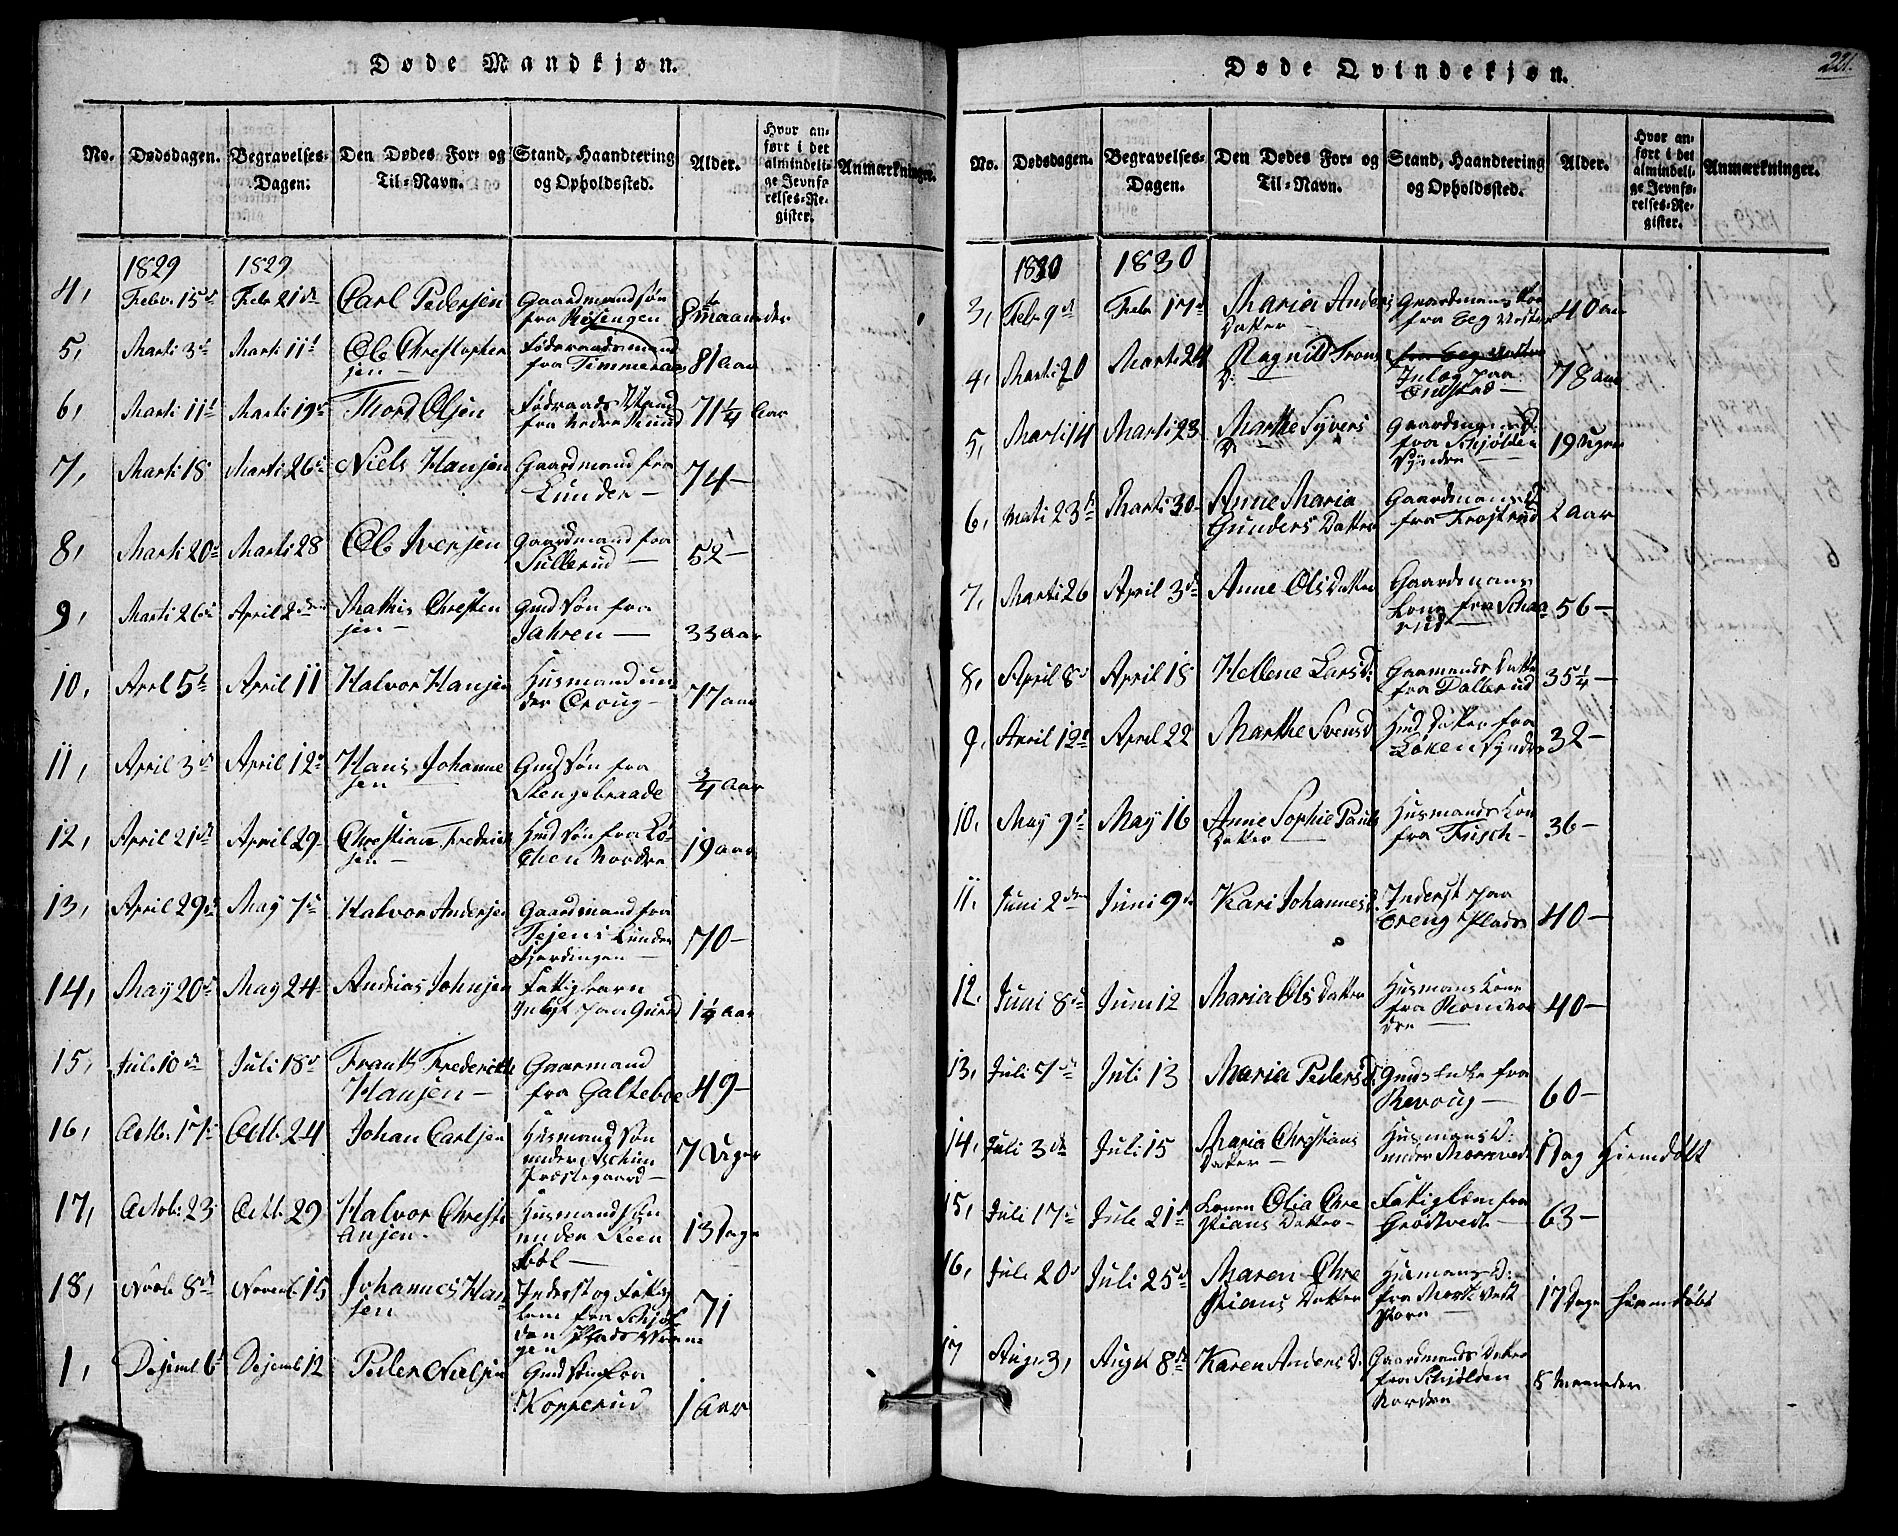 Døde Mandkjøn.
No. Dødsdagen. Begravelses-Dagen: Den Dødes For- og Til-Navn. Stand, Haandtering og Opholdssted. Alder. Hvor anført i det almindelige Jevnførelses-Register. Anmærkninger.
1829 1829
4, Febr. 15d Febr 21de Carl Pedersen Gaardmandsøn
fra 8 maaneder
5, Marti 3d Marti 11t Ole Christophersen Føderaadsmand
fra Timmeraas 81 aar
6, Marti 11t Marti 19d Thord Olsen Føderaads Mand
fra 71 1/4 Aar
7, Marti 18 Marti 26d Niels Hansen Gaardmand fra
Lunder — 74 —
8, Marti 20d Marti 28 Ole Iversen Gaardmand fra
Sullerud — 52 —
9, Marti 26d April 2den Mathis Christensen — Gmd søn fra
Jahren — 33 aar
10, April 5t April 11 Halvor Hansen Husmand under
Croug — 77 aar
11, April 3d April 12d Hans Johannesen Gmd søn fra
Stengsbraade 3/4 aar
12, April 21de April 29 Christian Frederiksen — Hmd søn fra Løchen Nordre 19 aar
13, April 29d May 7d Halvor Andersen Gaardmand fra
Tejens Lunder
Fjerdingen — 70 —
14, May 20d May 24 Andreas Johnsen Fattigbarn
Inlagt paa 1 1/4 aar
15, Juli 10de Juli 18d Frants Frederich
Hansen — Gaarmand
fra Galteboe 49 —
16, Octb. 17d Octb. 24 Johan Carlsen Husmand søn
under Aschim
Præstegaard — 7 Uger
17, Octob: 23 Octb. 29 Halvor Christiansen. Husmandsøn
under 13 Dage
18, Novb 8de Novemb. 15 Johannes Hansen Inderst og Fattiglem fra Schjølden Plads 71
1, Desemb 6t Desemb 12 Peder Nielsen Gmd søn fra
Kopperud 1 Aar
Døde Qvindekjøn.
221.
No. Dødsdagen. Begravelses-Dagen. Den Dødes For- og Til-Navn. Stand, Haandtering og Opholdssted. Alder. Hvor anført i det almindelige Jevnførelses-Register. Anmærkninger.
1830 1830
3, Febr 9de Febr 17d Maria Anders
Datter Gaardmans Kone
fra Eeg Vestre 40 aar
4, Marti 20 Marti 24 Ragnild Trons
D: fra Eeg Vestre
Inlæg paa
Endstad — 78 aar
5, Marti 14 Marti 23 Marthe Syvers
D: Gaardmans D.
fra Schjølden
Syndre — 19 Uger
6, Marti 23d Marti 30 Anne Maria
Gunders Datter Gaardmans D
fra Frøstrud 2 aar
7, Marti 26 April 3d Anne Ols Datter Gaardmans
Kone fra Schaarud — 56 —
8, April 8d April 18 Hellene Larsd: Gaarmands Datter
fra Dallerud 35 1/4 —
9, April 12t April 22 Marthe Svensd Hmd Datter fra
Løken Syndre 32 —
10, May 9d May 16 Anne Sophie Pauls
Datter — Husmands Kone
fra Frisch — 36 —
11. Juni 2den Juni 9d Kari Johannesd. Inderst paa
Ereng Plads 40 —
12, Juni 8d Juni 12 Maria Ols Datter Husmans Kone
fra 40 —
13, Juli 7d Juli 13 Maria Pedersd: Gmds Enke fra
Revoug — 60 —
14, Juli 3de Juli 15 Maria Christians
Datter — Husmans D:
under Mørtvedt 1 Dag Hiemdøbt
15, Juli 17d Juli 21d Konen Olia Christians Datter — Fattiglem fra
Grødtvedt — 63 —
16, Juli 20d Juli 25d Maren Christians Datter Husmans D:
fra 17 Dage Hiemdøbt
17 Augs 3, Augs 8de Karen Anders D. Gaardmands Datter
fra Schjølden
Nordre 5 Maaneder